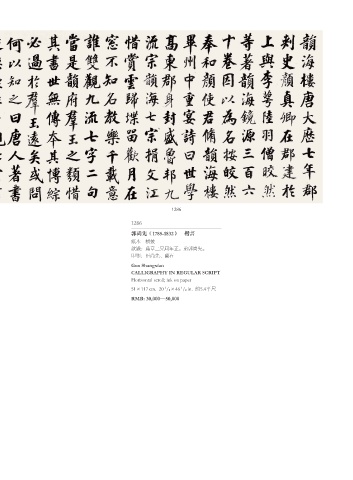 韻海樓唐大歷七年郡
刺史顏真卿在郡建於
上與李萼陸羽僧皎然
等著韻海鏡源三百六
十卷因以為名按皎然
奉和顏使君脩韻海樓
畢州中重宴詩曰世學
高東郡身封盛魯邦九
流宗韻海七宗捐文江
惜賞雲歸堞留歡月在
窓不知名教樂千載意
誰雙觀九流七字二句
當是韻府羣玉之類惜
其書世傳本其博綜
必過於羣玉遠矣或問
何以知之曰唐人著書
1286
1286
郭尚先（1785-1832） 楷書
Guo Shangxian
CALLIGRAPHY IN REGULAR SCRIPT
Horizontal scroll; ink on paper
RMB: 30,000—50,000